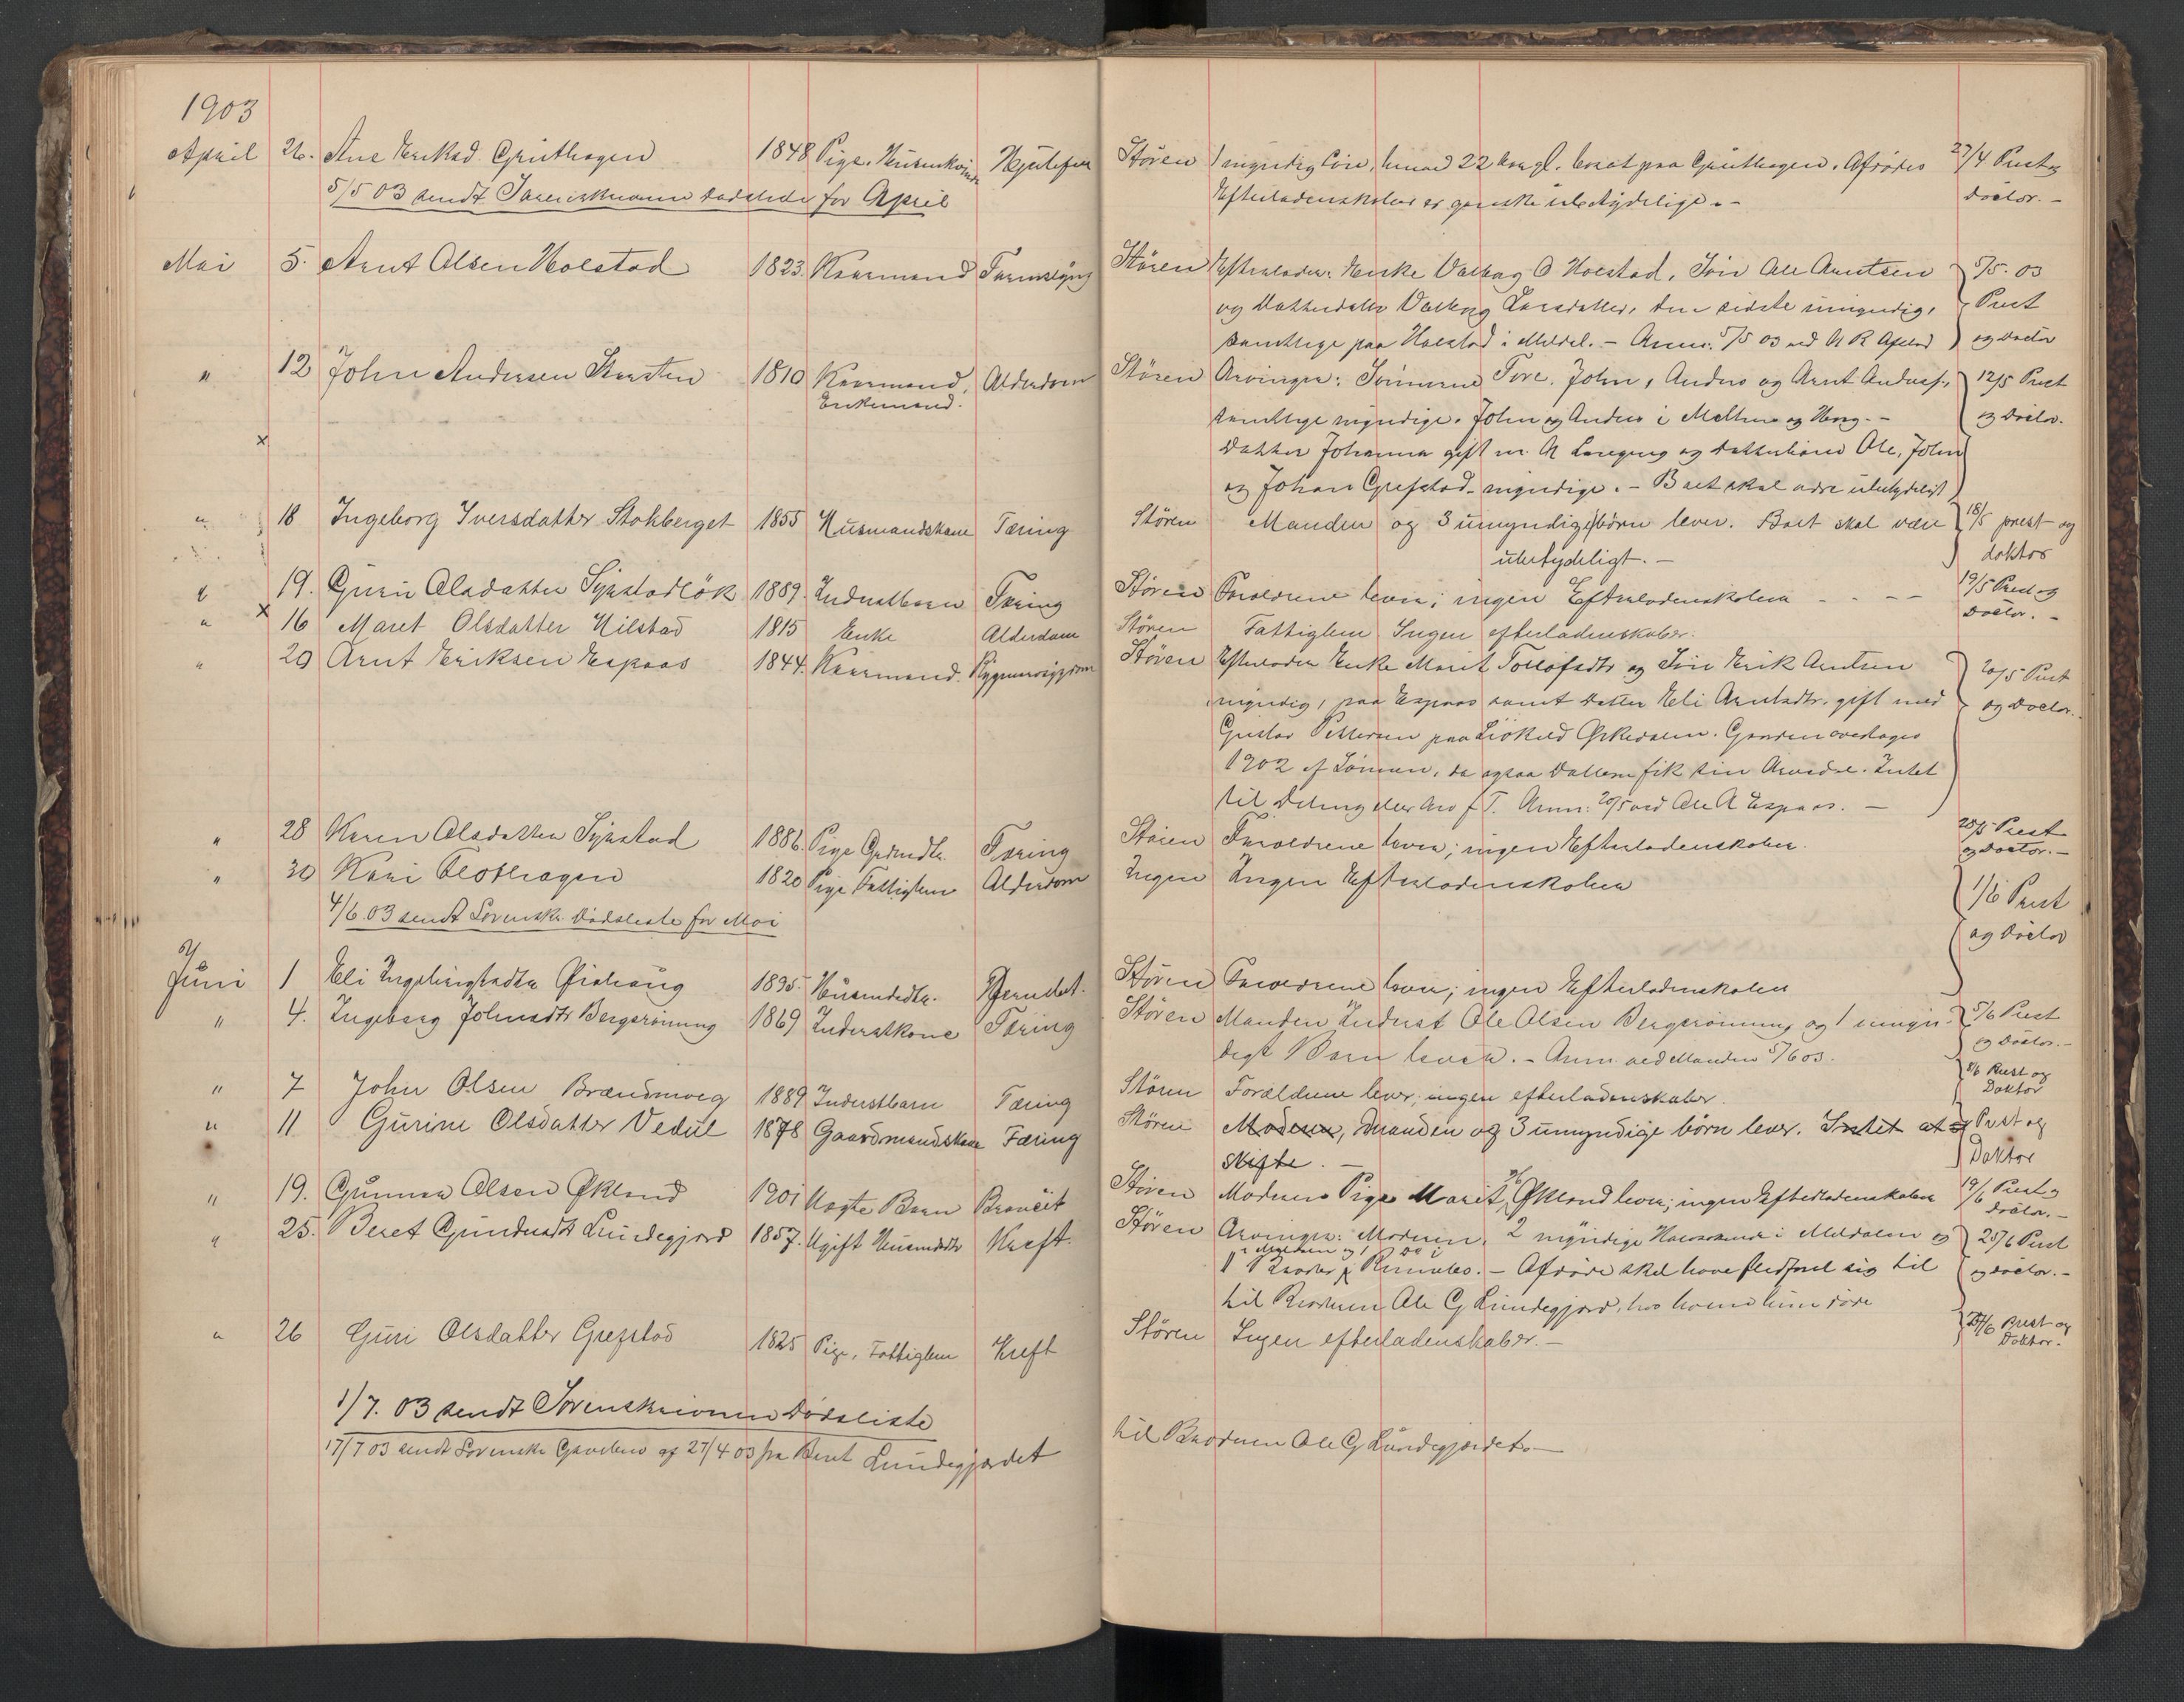 1903
April 26. Ane Eriksd. Gruthagen 1848 Pige, Husmkvinde Hjertefeil Støren 1 myndig Søn, Emund 22 Aar gl. bosat paa Gruthagen. Afdødes 27/4 Prest og
Efterladenskaber er ganske ubetydelige. - Doctor. -
5/5 03 sendt Sorenskriveren Dødsliste for April
Mai 5. Arnt Olsen Holstad 1823. Kaarmand Støren Efterlader: Enke Valborg O Holstad, Søn Ole Arntsen 5/5. 03
og Datterdatter Valborg Larsdatter, den sidste umyndig, Prest
samtlige paa Holstad i Meldal. - Anm. 5/5 03 ved og Doctor
" 12 John Andersen 1810 Kaarmand, Enkemand. Alderdom Støren Arvinger: Sønnerne Tore, John, Anders og Arnt Andersс., 12/5 Prest
samtlige myndige. John og Anders i Melhus og Horg. - og Doctor.
Datter Johanna gift m. og Datterbørn Ole, John
og Johan Grefstad, myndige. - Boet skal være ubetydeligt
" 18 Ingeborg Iversdatter Stokberget 1855 Husmandskone Tæring Støren Manden og 3 umyndige børn lever. Boet skal være 18/5 prest og
ubetydeligt. - doktor
" 19. Guri Olsdatter 1889. Inderstbarn Tæring Støren Forældrene lever; ingen Efterladenskaber - - - - 19/5 Prest og
Doctor. -
" x 16 Maret Olsdatter Hilstad 1815 Enke Alderdom Støren Fattiglem Ingen efterladenskaber.
" 20 Arnt Eriksen Espaas 1844. Kaarmand. Støren Efterlader Enke Marit Tollofsdtr og Søn Erik Arntsen 20/5 Prest
myndig, paa Espaas samt Datter Eli Arntsdtr. gift med og Doctor.
Gustav Pettersen paa Orkedalen. Gaarden overtages
1902 af Sønnen, da ogsaa Datteren fik sin Arvedel. Intet
til Deling eller Arv f T. Anm: 20/5 ved Ole A Espaas. -
" 28 Karen Olsdatter Syrstad 1886. Pige Tæring Støren Forældrene lever; ingen Efterladenskaber. 28/5 Prest
og Doctor. -
" 30 Kari 1820 Pige Fattiglem Alderdom Ingen Ingen Efterladenskaber 1/6 Prest
og Doctor
4/6 03 sendt Sorenskr. Dødsliste for Mai
Juni 1 Eli Ingebrigtsdtr 1895. Husmdsdtr. Støren Forældrene lever; ingen Efterladenskaber
" 4. Ingeborg Johnsdtr Bergsrønning 1869 Inderstkone Tæring Støren Manden Inderst Ole Olsen Bergsrønning og 1 umyn- 5/6 Prest
digt Barn lever. - Anm. ved Manden 5/6 03. og Doctor. -
" 7 John Olsen Brændmoeg 1889 Inderstbarn Tæring Støren Forældrene lever, ingen efterladenskaber. 8/6 Prest og
Doktor
" 11 Gurine Olsdatter Vedul 1878 Gaardmandskone Tæring Støren Moderen, Manden og 3 umyndige børn lever. Intet at Prest og
skifte. - Doktor
" 19. Gunnar Olsen Økland 1901 Uægte Barn Støren Moderen Pige Marit Økland lever; ingen Efterladenskaber 19/6 Prest og
Doctor. -
" 25. Beret Gundersdtr Lundegjerd 1857. Ugift Husmdsdtr Kreft. Støren Arvinger: Moderen, 2 myndige Halvsøskende i Meldalen og 25/6 Prest
1 Broder i Rennebo. - Afdøde skal have fledført sig til og Doctor. -
til Broderen Ole G Lundegjerd, hos hvem hun døde
" 26 Guri Olsdatter Grefstad 1825 Pige, Fattiglem Kreft Støren Ingen efterladenskaber. - 27/6 Prest og
Doktor.
1/7. 03 sendt Sorenskriveren Dødsliste
17/7 03 sendt Sorenskr. Gavebrev af 27/4 03 fra Beret Lundegjerdet til Broderen Ole G Lundegjerdet. -